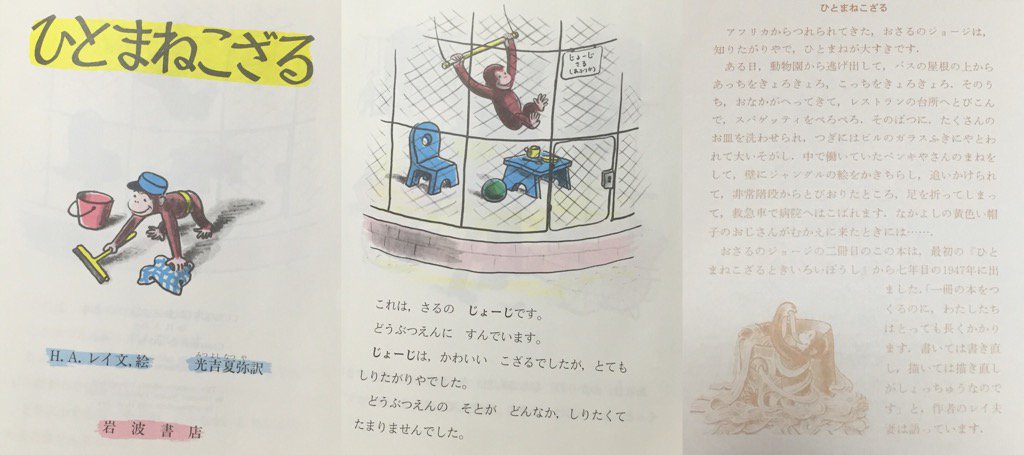 ひとまねこざる
H. A. レイ文,絵
みつよしなつや
光吉夏弥訳
岩波書店
じょーじ
さる
(あふりか)
これは, さるの じょーじです。
どうぶつえんに すんでいます。
じょーじは, かわいい こざるでしたが, とても
しりたがりやでした。
どうぶつえんの そとが どんなか, しりたくて
たまりませんでした。
ひとまねこざる
アフリカからつれられてきた, おさるのジョージは,
知りたがりやで, ひとまねが大すきです.
ある日, 動物園から逃げ出して, バスの屋根の上から
あっちをきょろきょろ, こっちをきょろきょろ. そのう
ち, おなかがへってきて, レストランの台所へとびこん
で, スパゲッティをぺろぺろ. そのばつに, たくさんの
お皿を洗わせられ, つぎにはビルのガラスふきにやとわ
れて大いそがし. 中で働いていたペンキやさんのまねを
して, 壁にジャングルの絵をかきちらし, 追いかけられ
て, 非常階段からとびおりたところ, 足を折ってしまっ
て, 救急車で病院へはこばれます. なかよしの黄色い帽
子のおじさんがむかえに来たときには……
おさるのジョージの二冊目のこの本は, 最初の『ひと
まねこざるときいろいぼうし』から七年目の1947年に出
ました. 「一冊の本をつ
くるのに, わたしたち
はとっても長くかかり
ます. 書いては書き直
し, 描いては描き直し
がしょっちゅうなので
す」と, 作者のレイ夫
妻は語っています.